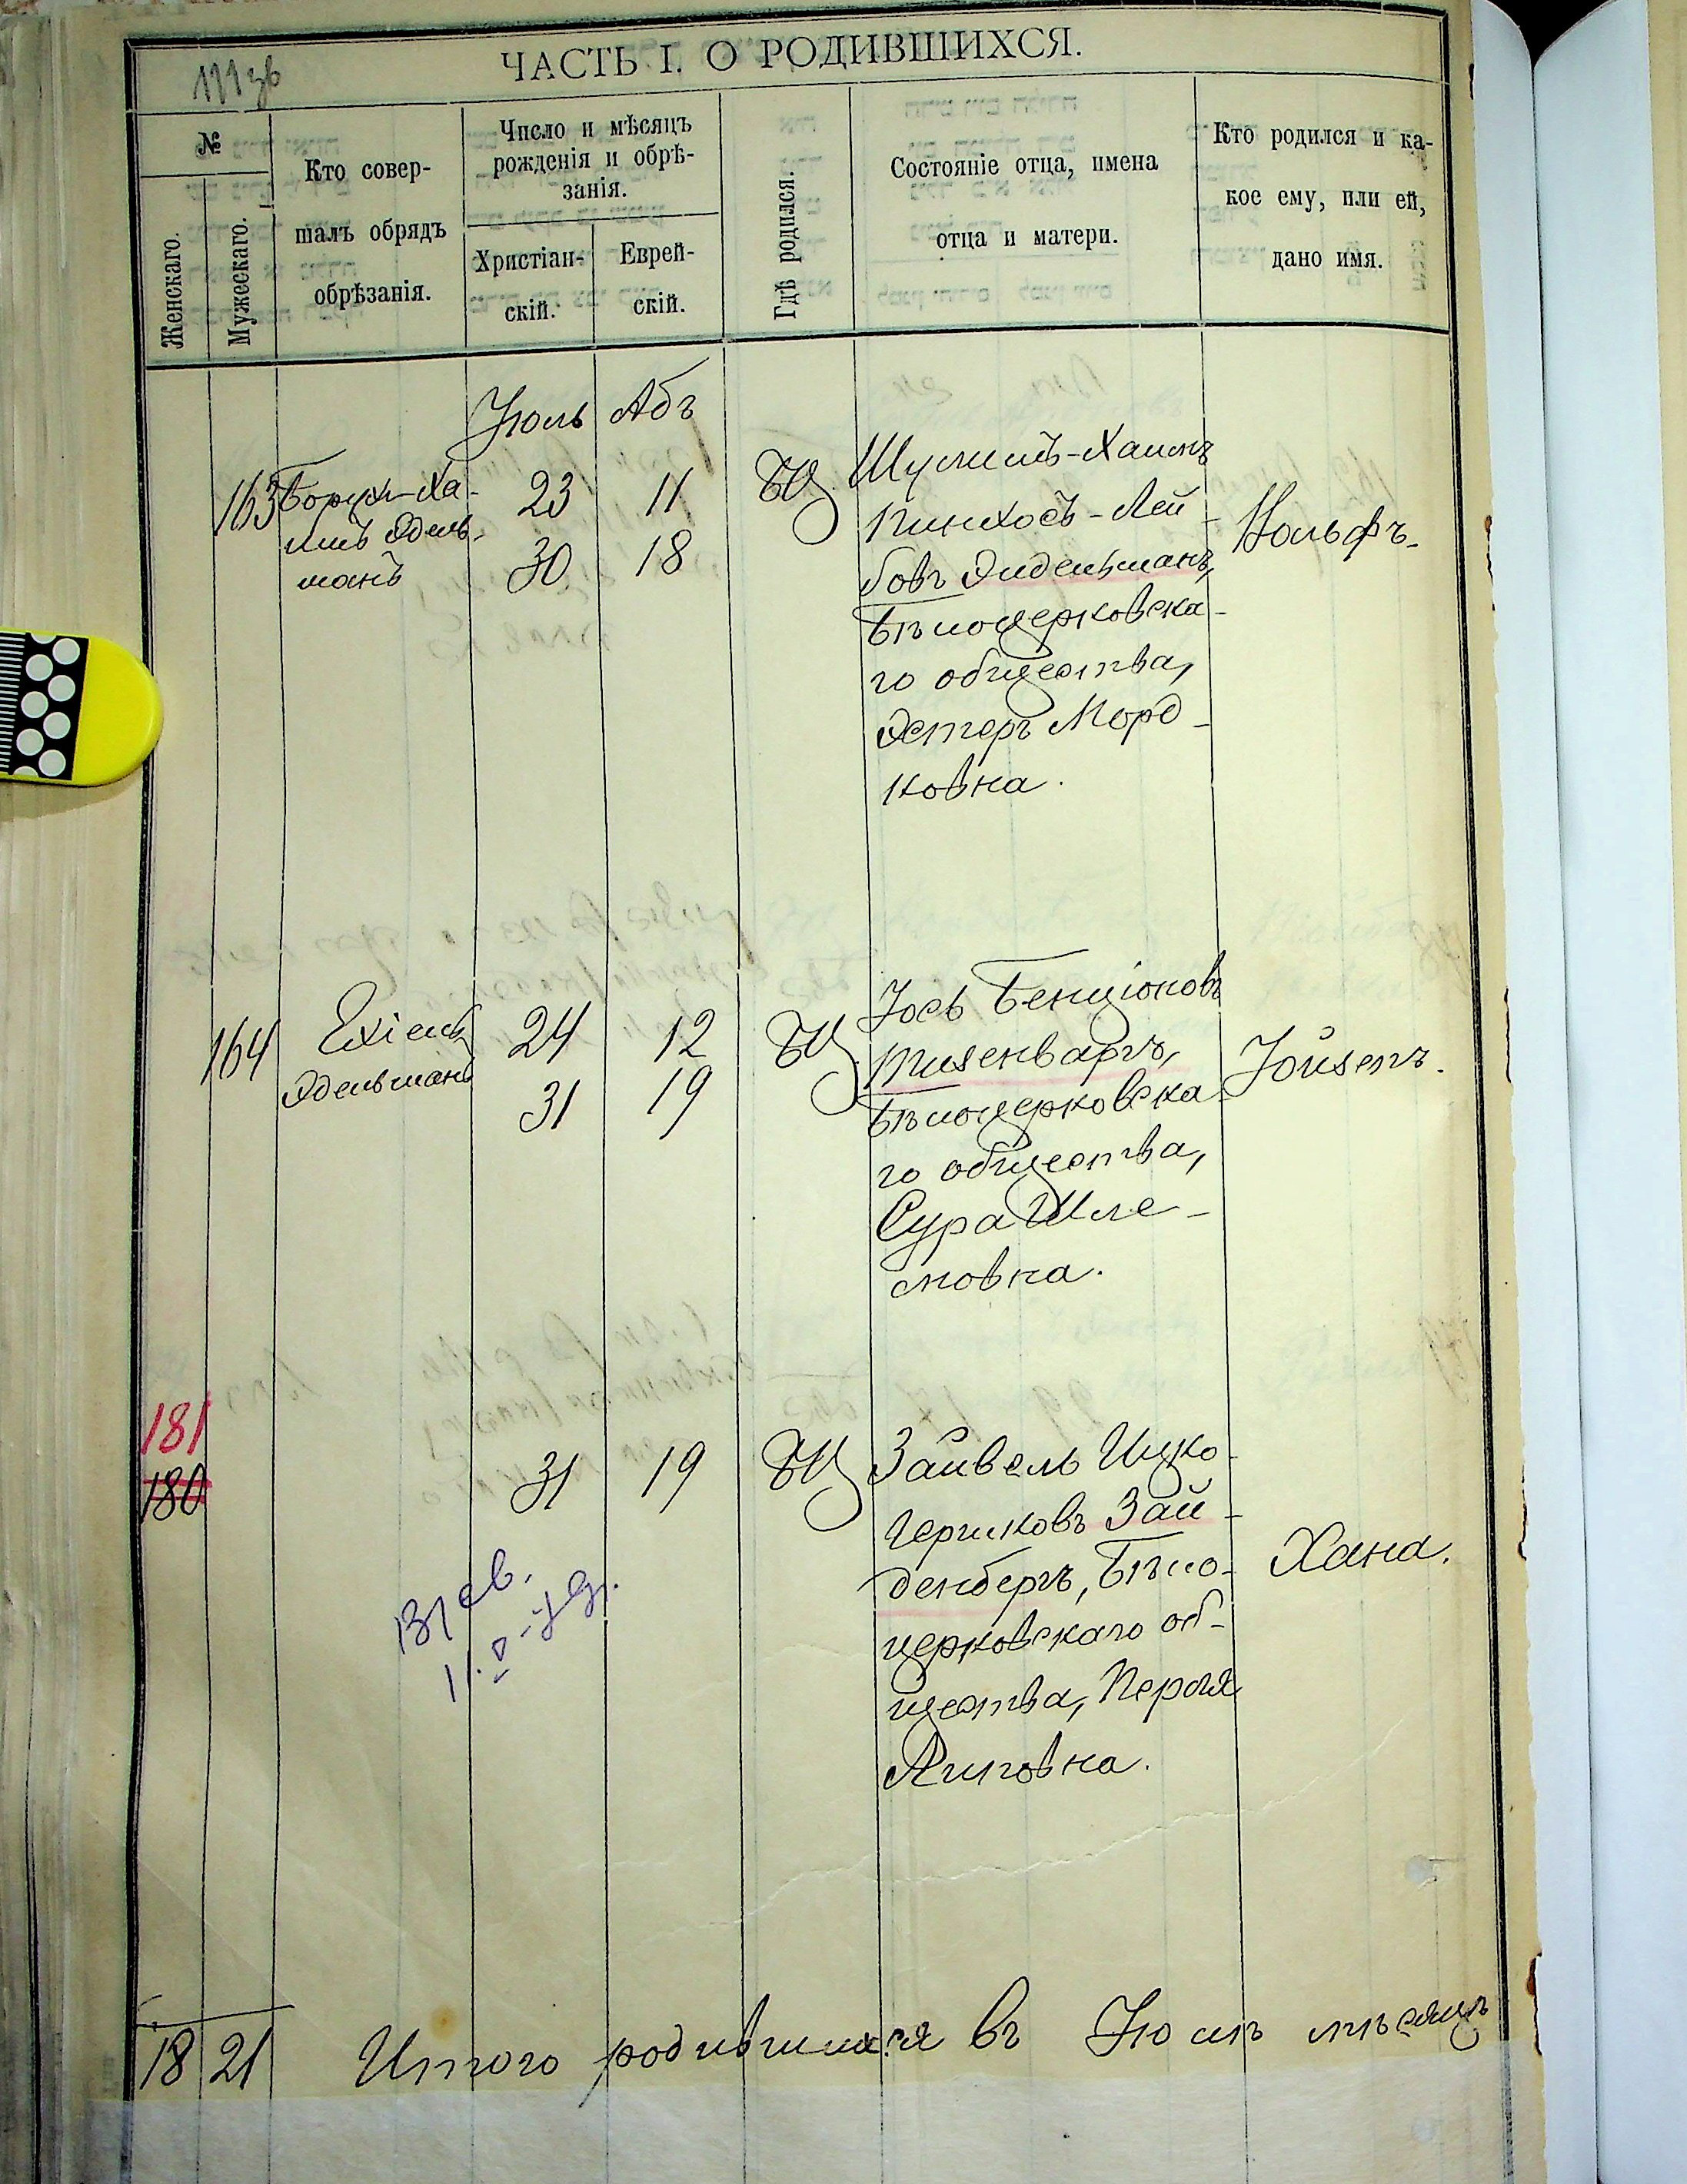 ЧАСТЬ I. О РОДИВШИХСЯ.
№
Женскаго.
Мужескаго.
Кто совер-
шалъ обрядъ
обрѣзанія.
Число и мѣсяцъ
рожденія и обрѣ-
занія.
Христіан-
скій.
Еврей-
скій.
Гдѣ родился.
Состояніе отца, имена
отца и матери.
Кто родился и ка-
кое ему, или ей,
дано имя.
Июль Абъ
163
Борух-Ха-
имъ Эдель-
манъ
23 11
30 18
БЦ
Шулимъ-Хаимъ
Пинхосъ-Лей-
бовъ Эйдельманъ,
Бѣлоцерковска-
го общества,
Эстеръ Морд-
ковна.
Вольфъ.
164
Ехіель
Эдельманъ
24 12
31 19
БЦ
Іось Бенціоновъ
Тизенваргъ,
Бѣлоцерковска-
го общества,
Сура Шле-
мовна.
Іойзепъ.
181
180
31 19
БЦ
Зайвель Ицко-
Гершковъ Зай-
денбергъ, Бѣло-
церковскаго об-
щества, Перля
Липовна.
Хана.
18 21 Итого родившихся въ Июлѣ мѣсяцѣ